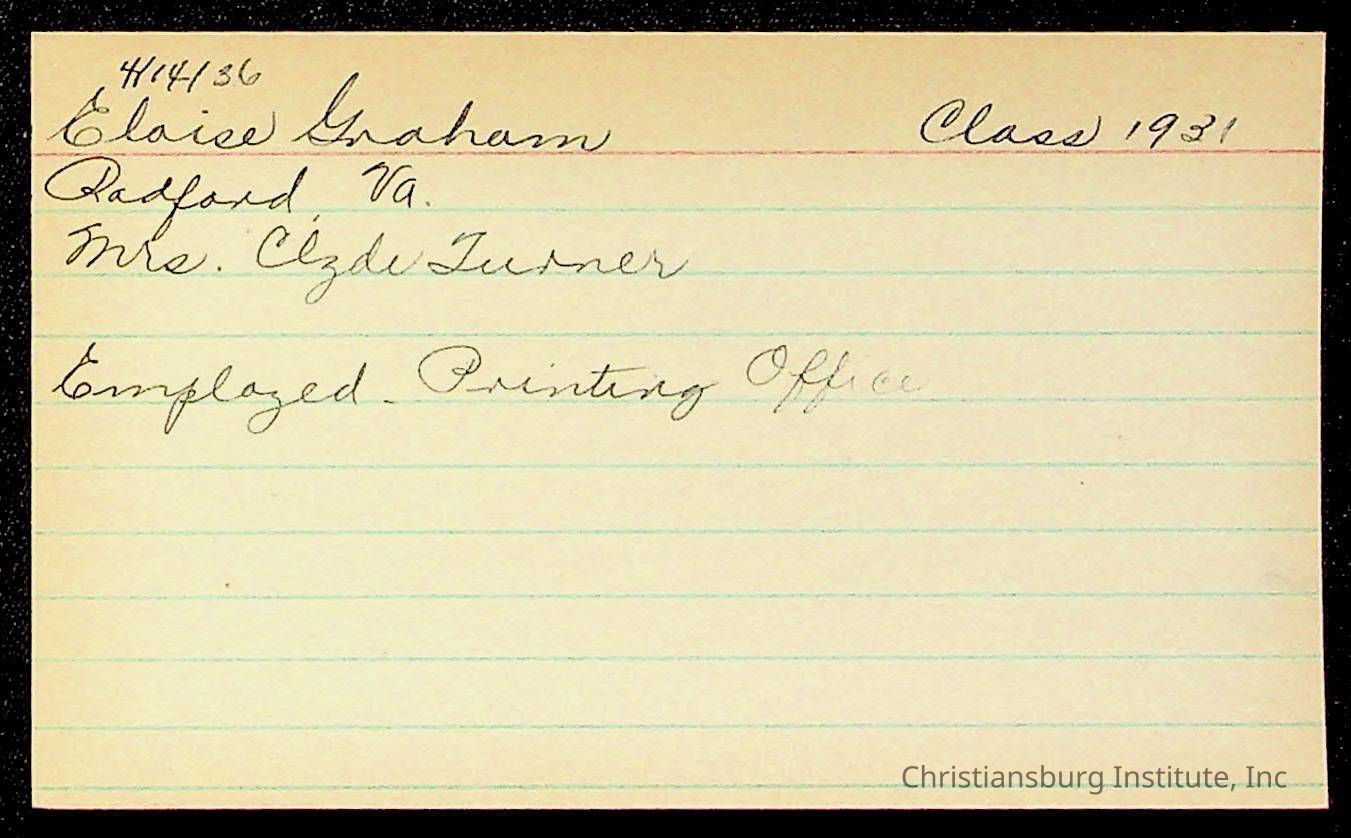 4/14/36
Eloise Graham Class 1931
Radford, Va.
Mrs. Clyde Turner
Employed - Printing Office
Christiansburg Institute, Inc